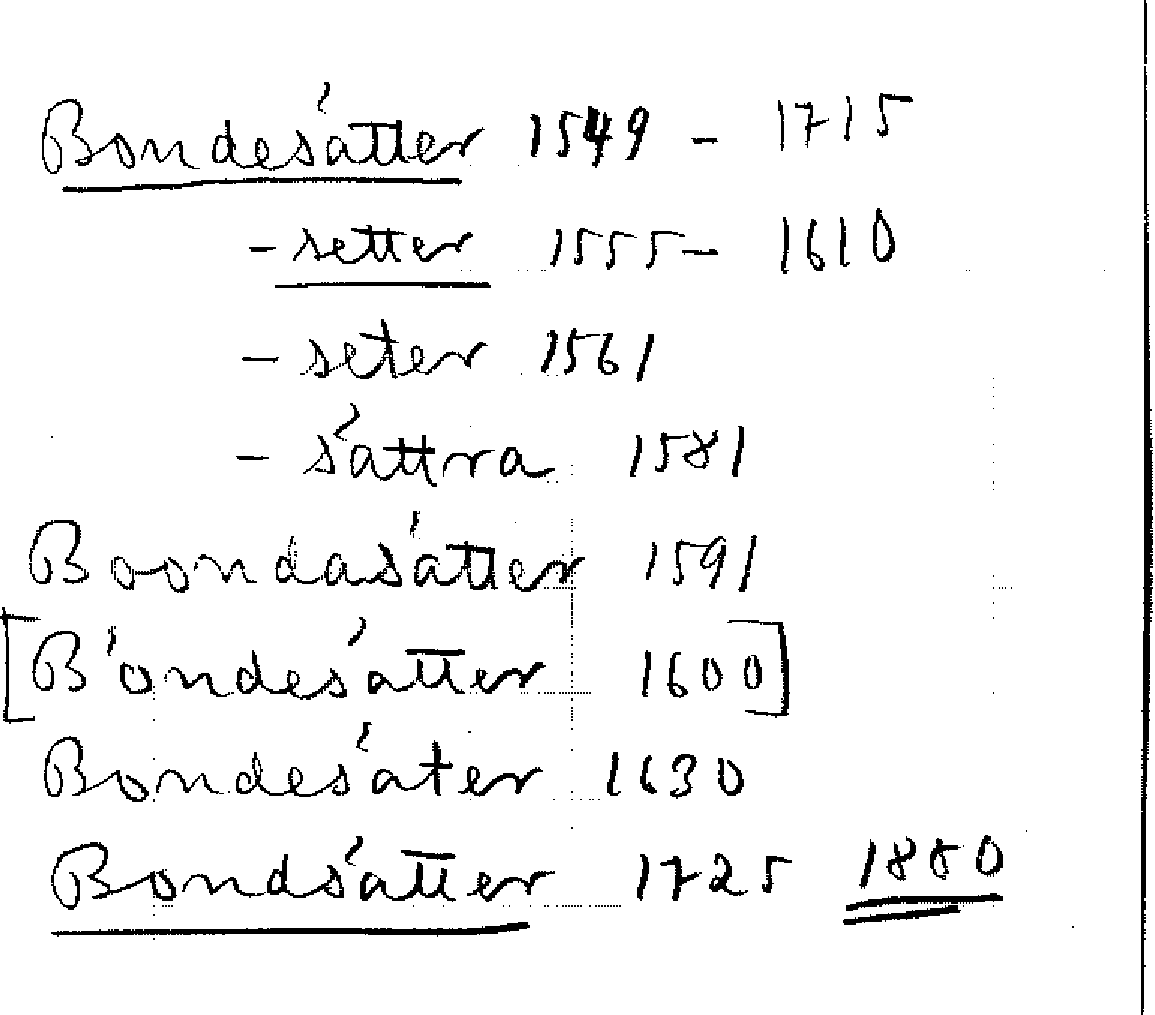 Bondesätter 1549 - 1715
- setter 1555 - 1610
- seter 1561
- sättra 1581
Boondasätter 1591
[Böndesätter 1600]
Bondesäter 1630
Bondsätter 1725 1880